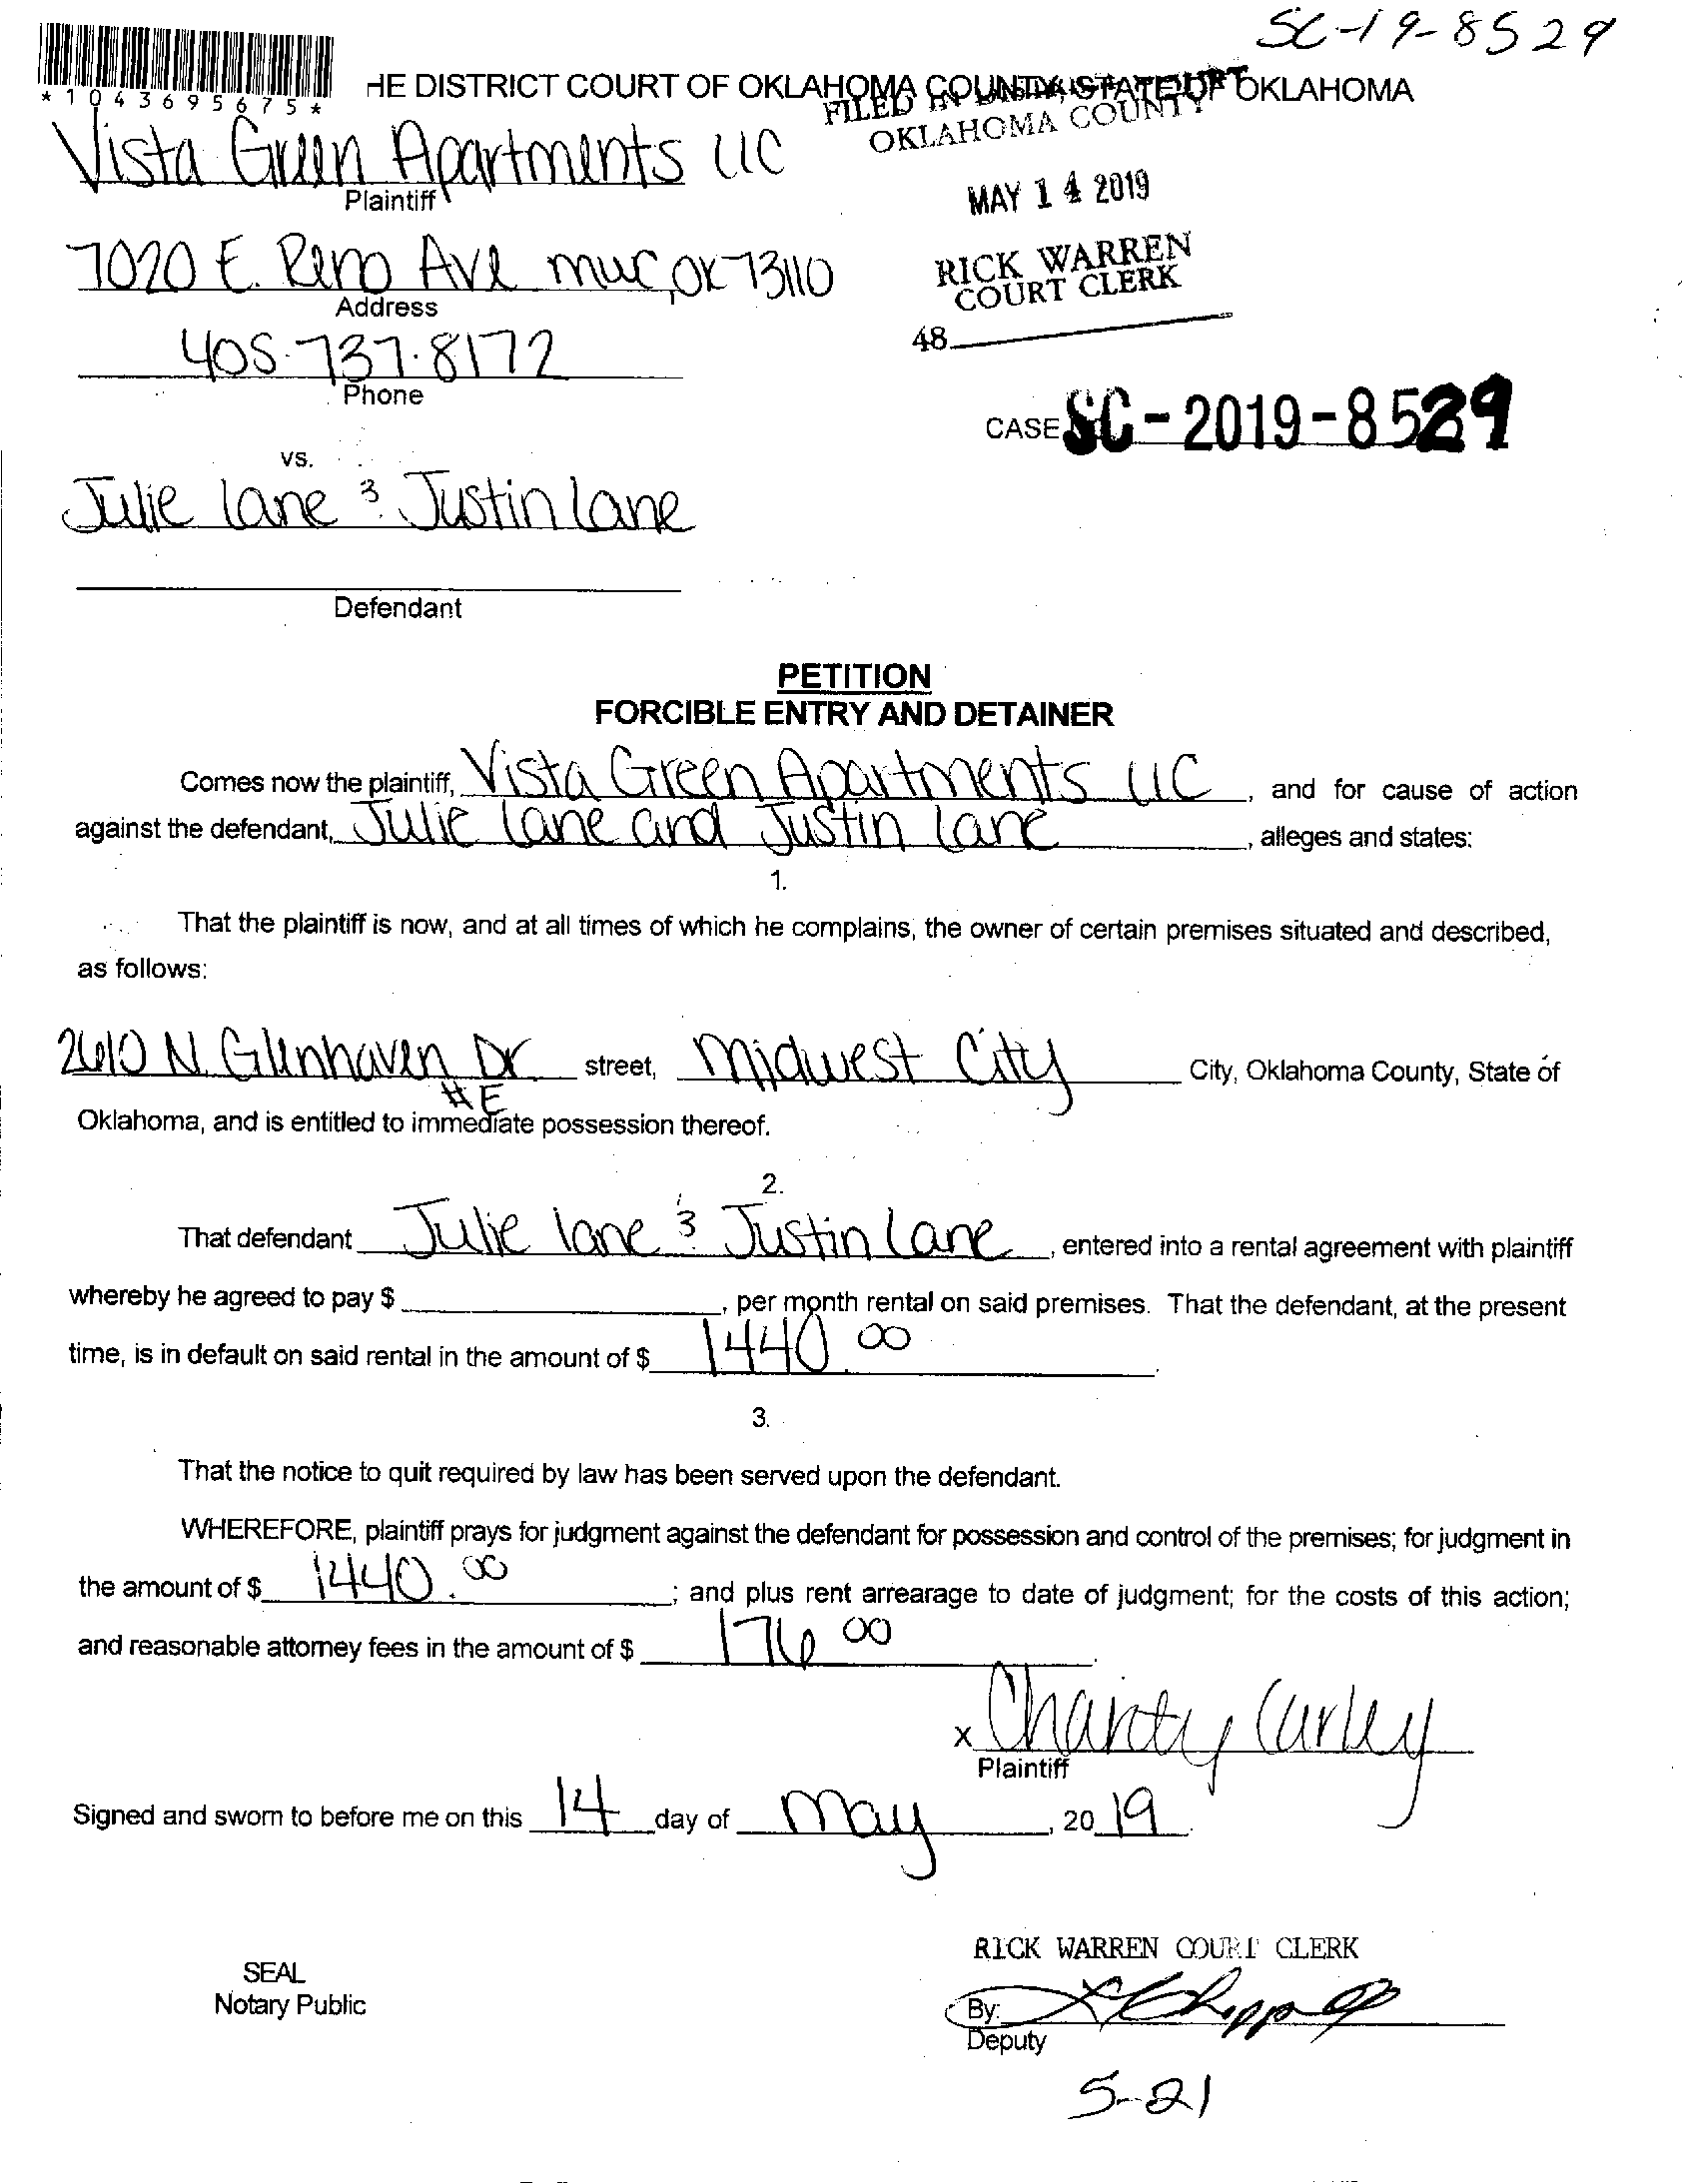 SC-19-8529
*1043695675*
HE DISTRICT COURT OF OKLAHOMA COUNTY, STATE OF OKLAHOMA
FILED IN DISTRICT COURT
OKLAHOMA COUNTY
Vista Green Apartments LLC
Plaintiff
MAY 14 2019
7020 E. Reno Ave MWC, OK 73110
Address
RICK WARREN
COURT CLERK
48
405-737-8172
Phone
CASE SC-2019-8529
vs.
Julie Lane & Justin Lane
Defendant
PETITION
FORCIBLE ENTRY AND DETAINER
Comes now the plaintiff, Vista Green Apartments LLC, and for cause of action
against the defendant, Julie Lane and Justin Lane, alleges and states:
1.
That the plaintiff is now, and at all times of which he complains, the owner of certain premises situated and described,
as follows:
2610 N. Glenhaven Dr street, Midwest City City, Oklahoma County, State of
#E
Oklahoma, and is entitled to immediate possession thereof.
2.
That defendant Julie Lane & Justin Lane, entered into a rental agreement with plaintiff
whereby he agreed to pay $, per month rental on said premises. That the defendant, at the present
time, is in default on said rental in the amount of $ 1440.00.
3.
That the notice to quit required by law has been served upon the defendant.
WHEREFORE, plaintiff prays for judgment against the defendant for possession and control of the premises; for judgment in
the amount of $ 1440.00; and plus rent arrearage to date of judgment; for the costs of this action;
and reasonable attorney fees in the amount of $ 176 00.
x Charity Curley
Plaintiff
Signed and sworn to before me on this 14 day of May, 2019.
RICK WARREN COURT CLERK
SEAL
Notary Public
By:
Deputy
5-21